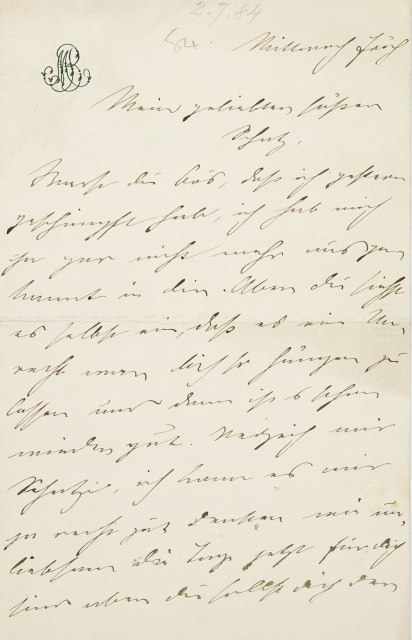 2.7.84
84.
Mittwoch früh
Mein geliebter süßer
Schatz,
Warst du bös, daß ich gestern
geschimpft hab, ich hab mich
ja gar nicht mehr ausge
kannt in dir. Aber du siehst
es selbst ein, daß es ein Un-
recht war dich so hungern zu
lassen und dann ist's schon
wieder gut. Verzeih mir
Schatzi, ich kann es mir
ja recht gut denken wie un-
liebsam die Tage jetzt für dich
sind aber du sollst dich den